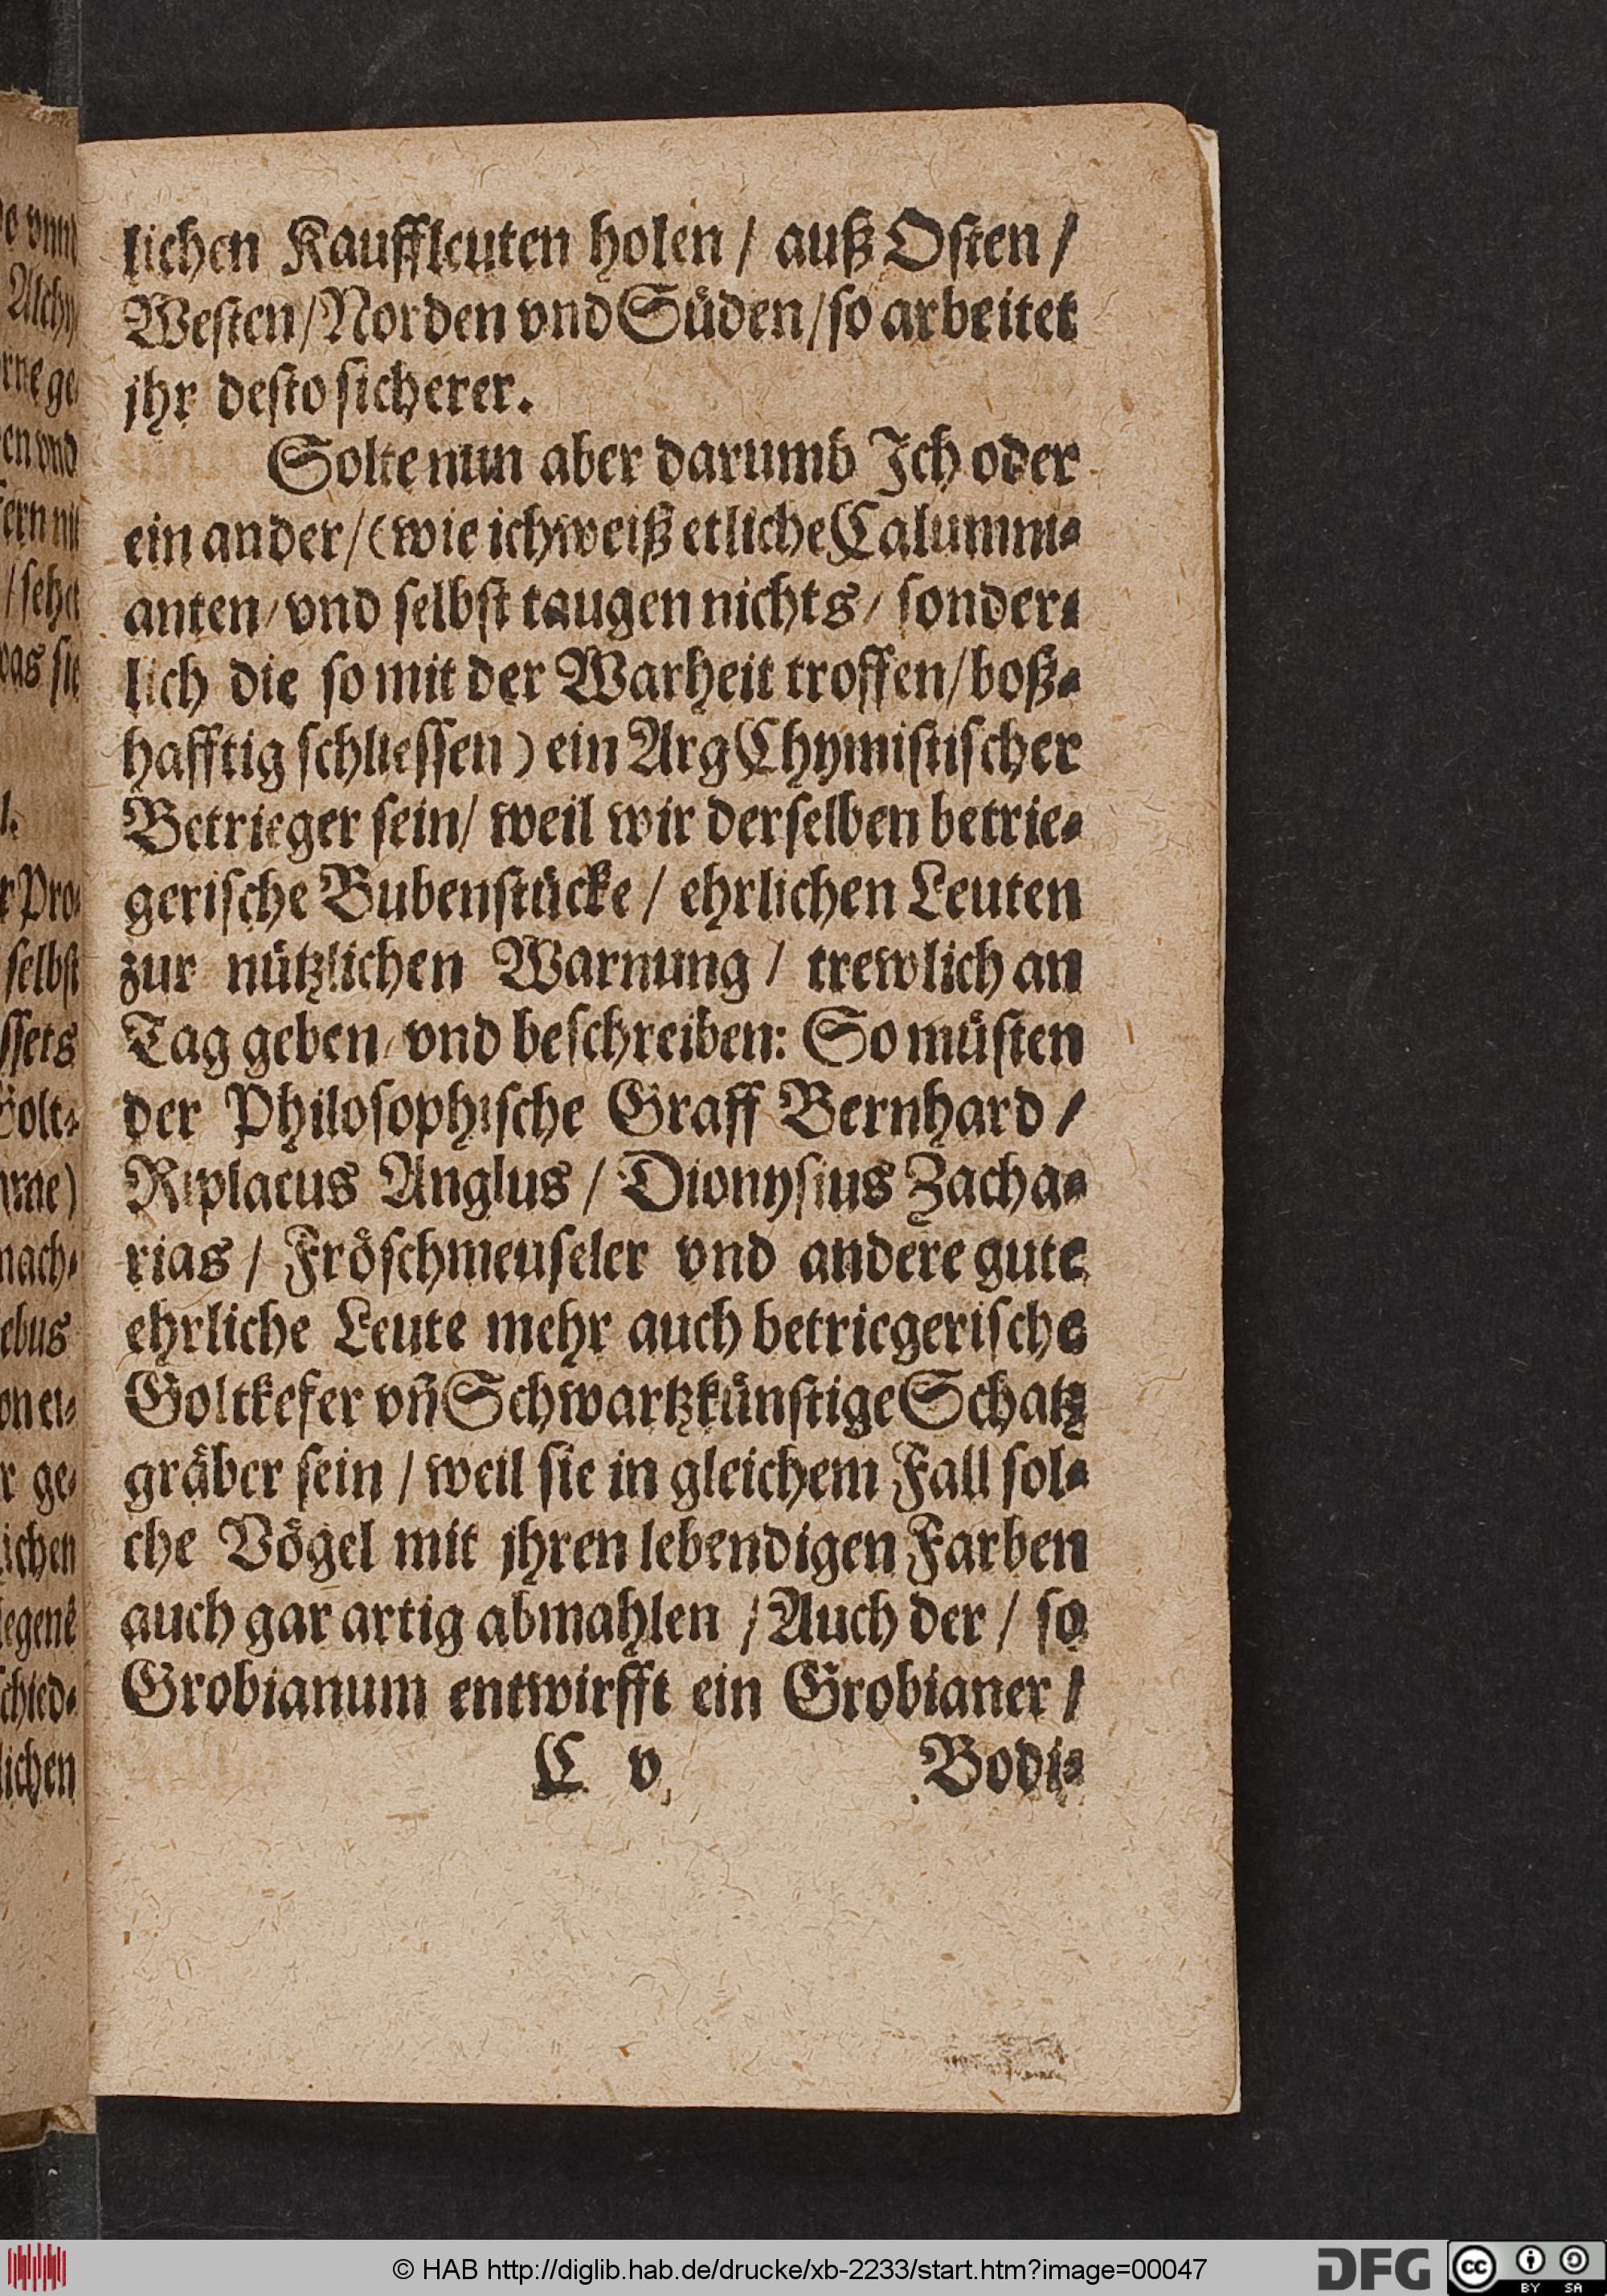 lichen Kauffleuten holen / auß Osten /
Westen / Norden vnd Süden / so arbeitet
jhr desto sicherer.
Solte nun aber darumb Ich oder
ein ander / (wie ich weiß etliche Calumni-
anten / vnd selbst taugen nichts / sonder-
lich die so mit der Warheit troffen / boß-
hafftig schliessen) ein Arg Chymistischer
Betrieger sein / weil wir derselben betrie-
gerische Bubenstücke / ehrlichen Leuten
zur nützlichen Warnung / trewlich an
Tag geben / vnd beschreiben: So müsten
der Philosophische Graff Bernhard /
Riplaeus Anglus / Dionysius Zacha-
rias / Fröschmeuseler vnd andere gute
ehrliche Leute mehr auch betriegerische
Goltkefer vñ Schwartzkünstige Schatz
gräber sein / weil sie in gleichem Fall sol-
che Vögel mit jhren lebendigen Farben
auch gar artig abmahlen / Auch der / so
Grobianum entwirfft ein Grobianer /
C v Bodi-
© HAB http://diglib.hab.de/drucke/xb-2233/start.htm?image=00047
DFG
cc BY SA